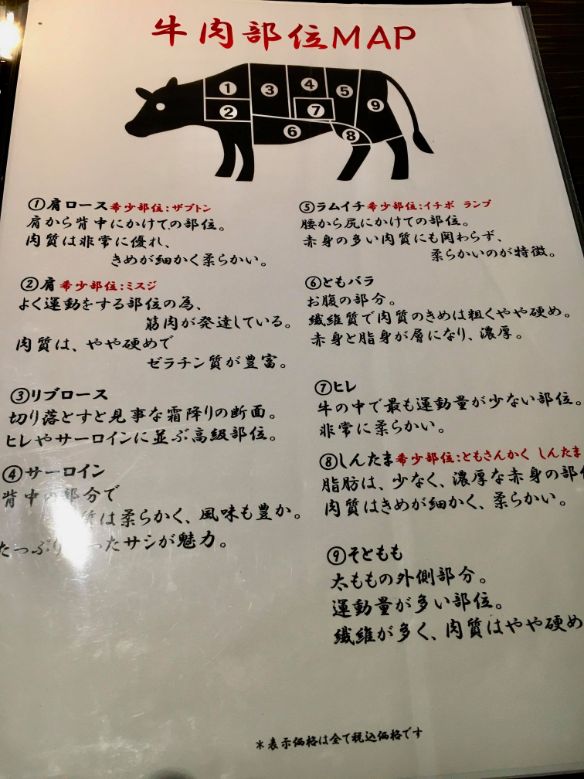 牛肉部位MAP
①
②
③
④
⑤
⑥
⑦
⑧
⑨
①肩ロース 希少部位:ザブトン
肩から背中にかけての部位。
肉質は非常に優れ、
きめが細かく柔らかい。
②肩 希少部位:ミスジ
よく運動をする部位の為、
筋肉が発達している。
肉質は、やや硬めで
ゼラチン質が豊富。
③リブロース
切り落とすと見事な霜降りの断面。
ヒレやサーロインに並ぶ高級部位。
④サーロイン
背中の部分で
質は柔らかく、風味も豊か。
たっぷり ったサシが魅力。
⑤ラムイチ 希少部位:イチボ ランプ
腰から尻にかけての部位。
赤身の多い肉質にも関わらず、
柔らかいのが特徴。
⑥ともバラ
お腹の部分。
繊維質で肉質のきめは粗くやや硬め。
赤身と脂身が層になり、濃厚。
⑦ヒレ
牛の中で最も運動量が少ない部位。
非常に柔らかい。
⑧しんたま 希少部位:ともさんかく しんたま
脂肪は、少なく、濃厚な赤身の部位
肉質はきめが細かく、柔らかい。
⑨そともも
太ももの外側部分。
運動量が多い部位。
繊維が多く、肉質はやや硬め
＊表示価格は全て税込価格です